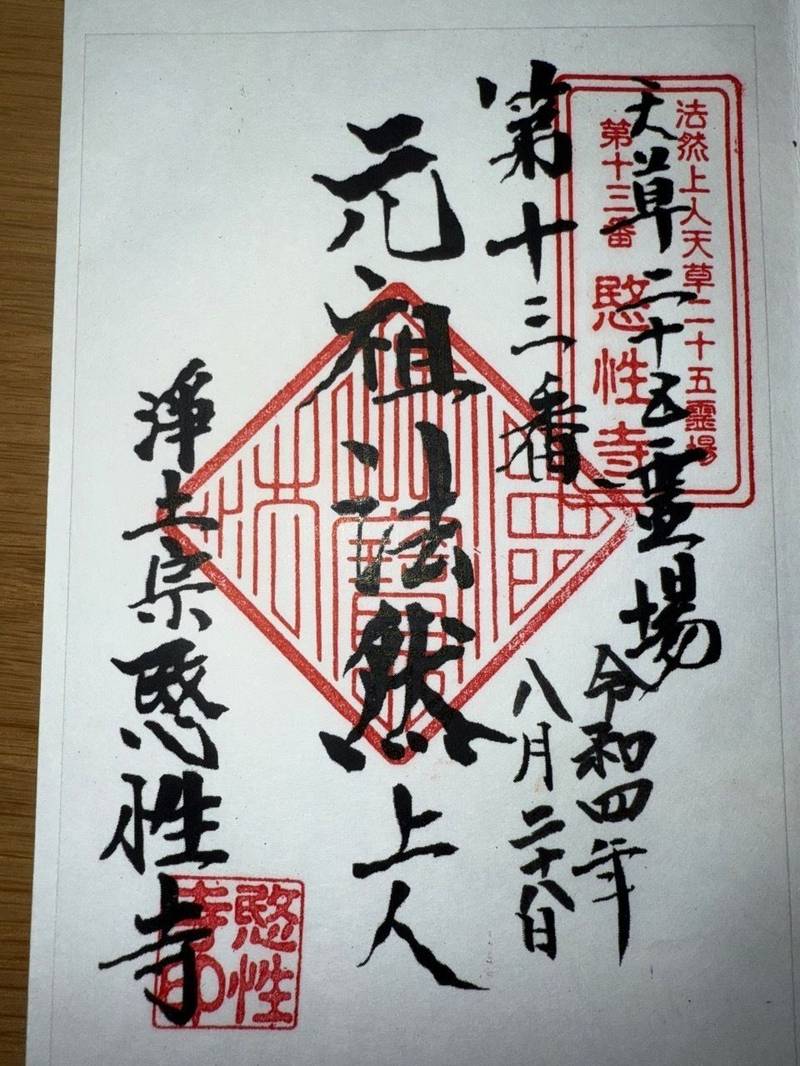 法然上人天草二十五霊場
第十三番
愍性寺
天草二十五霊場
第十三番
令和四年
八月二十八日
元祖法然上人
淨土宗愍性寺
愍性
寺印